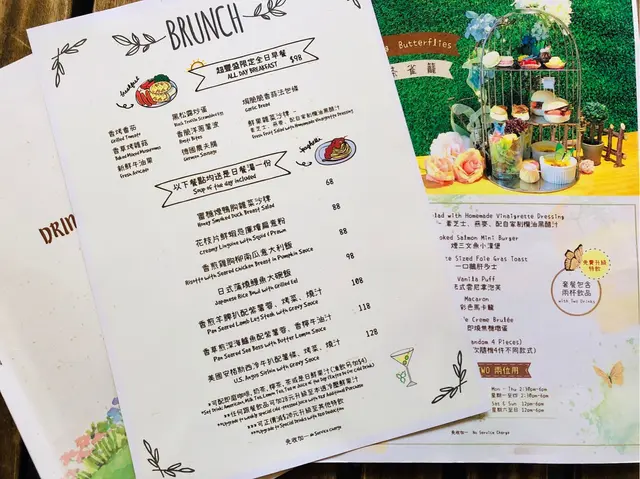 BRUNCH
超豐盛限定全日早餐
ALL DAY BREAKFAST $98
breakfast
香烤番茄
Grilled Tomato
香草烤雜菇
Baked Mixed Mushrooms
新鮮牛油果
Fresh Avocado
黑松露炒蛋
Black Truffle Scrambled Egg
香脆洋蔥薯波
德國黑夫腸
German Sausage
焗脆脆香蒜法包條
Garlic Bread
鮮果雜菜沙律
Fresh Fruit Salad with Homemade Vinaigrette Dressing
以下餐點均送是日餐湯一份
Soup of the day included
spaghetti
蜜糖煙鴨胸雜菜沙律 68
Honey Smoked Duck Breast Salad
花枝片鮮蝦忌廉燴扁意粉 88
Creamy Linguine with Squid & Prawn
香煎雞胸柳南瓜意大利飯 88
Risotto with Seared Chicken Breast in Pumpkin Sauce
日式蒲燒鰻魚大碗飯 98
Japanese Rice Bowl with Grilled Eel
香煎羊髀扒配薯蓉、烤菜、燒汁 108
Pan Seared Lamb Leg Steak with Gravy Sauce
香草煎深海鱸魚配薯蓉、香檸牛油汁 118
Pan Seared Sea Bass with Butter Lemon Sauce
美國安格斯西冷牛扒配薯條、烤菜、燒汁 128
U.S. Angus Sirloin with Gravy Sauce
免收加一 No Service Charge
DRIN
Butterflies
雀籠
Salad with Homemade Vinaigrette Dressing
Smoked Salmon Mini Burger
煙三文魚小漢堡
Bite Sized Foie Gras Toast
一口鵝肝多士
Vanilla Puff
Macaron
彩色馬卡龍
Creme Brulée
即燒焦糖燉蛋
(Random 4 Pieces)
免費升級
特飲
套餐包含
兩杯飲品
with Two Drinks
TWO 兩位用
Mon - Thu 2:30pm-6pm
星期一至四 2:30pm-6pm
Sat & Sun 12pm-6pm
星期六至日 12pm-6pm
免收加一 No Service Charge